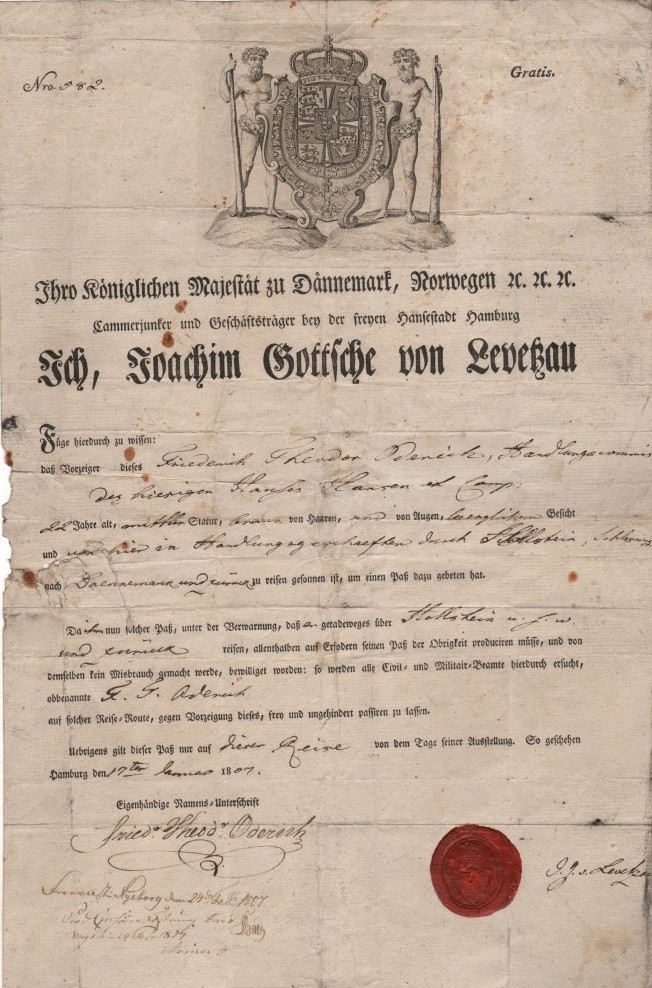 Nro. 582.
Gratis.
Ihro Königlichen Majestät zu Dännemark, Norwegen ꝛc. ꝛc. ꝛc.
Cammerjunker und Geschäftsträger bey der freyen Hansestadt Hamburg
Ich, Joachim Gottsche von Levetzau
Füge hierdurch zu wissen:
daß Vorzeiger dieses Friederich Theodor Oderich, Handlungscommis
des hiesigen Hauses Hansen et Comp.
22 Jahre alt, mittler Statur, braun von Haaren, und von Augen, Gesicht
und von hier in Handlungsgeschaeften durch Hollstein, Schleswig
nach Daennemark und zurück zu reisen gesonnen ist, um einen Paß dazu gebeten hat.
Da ihm nun solcher Paß, unter der Verwarnung, daß er geradeweges über Hollstein u. s. w.
und zurück reisen, allenthalben auf Erfodern seinen Paß der Obrigkeit produciren müsse, und von
demselben kein Misbrauch gemacht werde, bewilliget worden: so werden alle Civil- und Militair-Beamte hierdurch ersucht,
obbenannte F. T. Oderich
auf solcher Reise-Route, gegen Vorzeigung dieses, frey und ungehindert passiren zu lassen.
Uebrigens gilt dieser Paß nur auf diese Reise von dem Tage seiner Ausstellung. So geschehen
Hamburg den 17ten Januar 1807.
Eigenhändige Namens-Unterschrift
Friedr. Theodr. Oderich
J. G. v. Levetzau
Nyeborg den 24 Febr. 1807